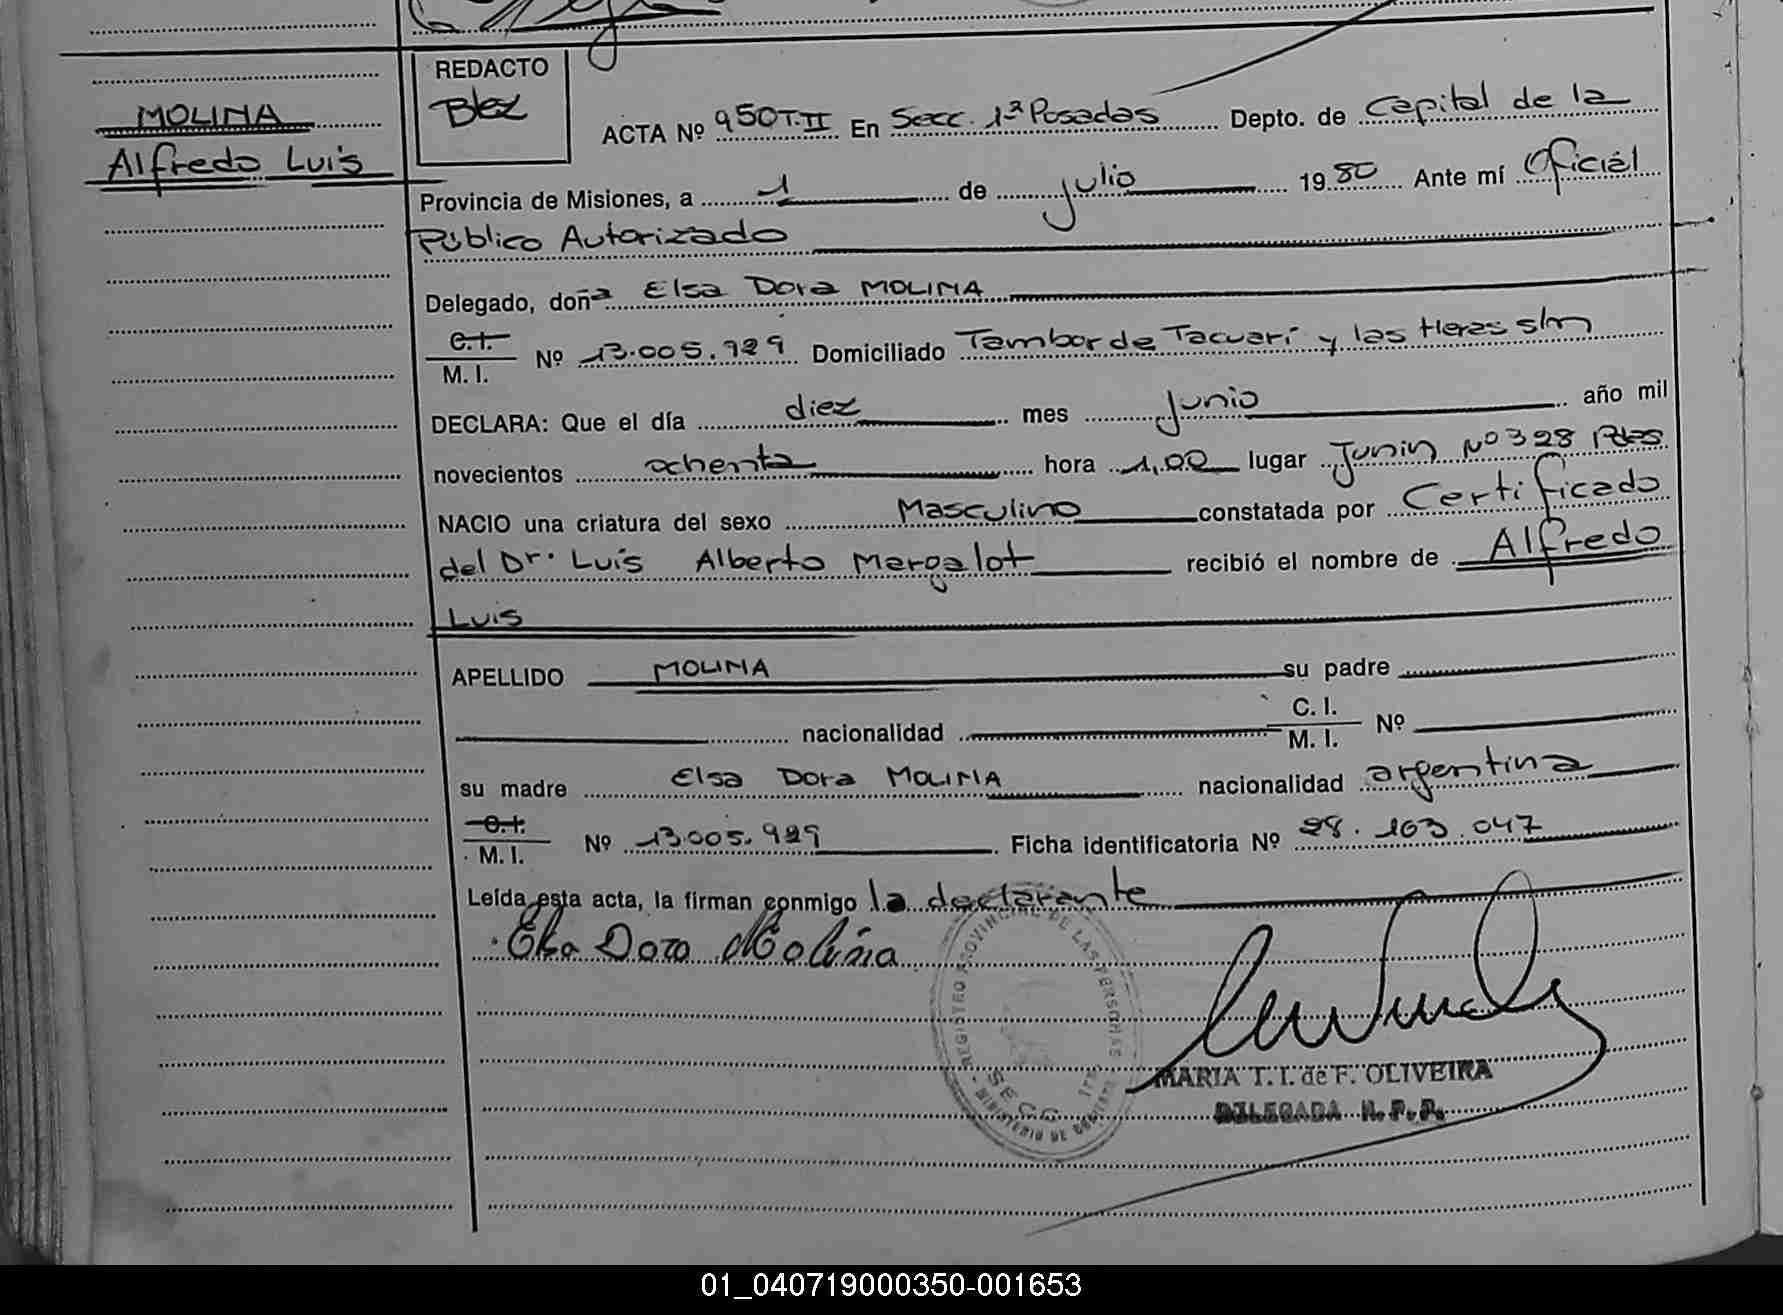 MOLINA
Alfredo Luis
REDACTO
Blez
ACTA Nº 950 T.II En Secc. 1ª Posadas Depto. de Capital de la
Provincia de Misiones, a 1 de julio 1980 Ante mí Oficial
Público Autorizado
Delegado, doña Elsa Dora MOLINA
C.I.
M. I. Nº 13.005.929 Domiciliado Tambor de Tacuarí y las Heras s/n
DECLARA: Que el día diez mes junio año mil
novecientos ochenta hora 1,00 lugar Junin Nº 328 Pdas
NACIO una criatura del sexo Masculino constatada por Certificado
del Dr. Luis Alberto Margalot recibió el nombre de Alfredo
Luis
APELLIDO MOLINA su padre
nacionalidad C. I.
M. I. Nº
su madre Elsa Dora MOLINA nacionalidad argentina
C.I.
M. I. Nº 13.005.929 Ficha identificatoria Nº 28.103.047
Leída esta acta, la firman conmigo la declarante
Elsa Dora Molina
REGISTRO PROVINCIAL DE LAS PERSONAS
SECC. 1ra
MINISTERIO DE GOBIERNO
MARIA T. I. de F. OLIVEIRA
DELEGADA R. P. P.
01_040719000350-001653